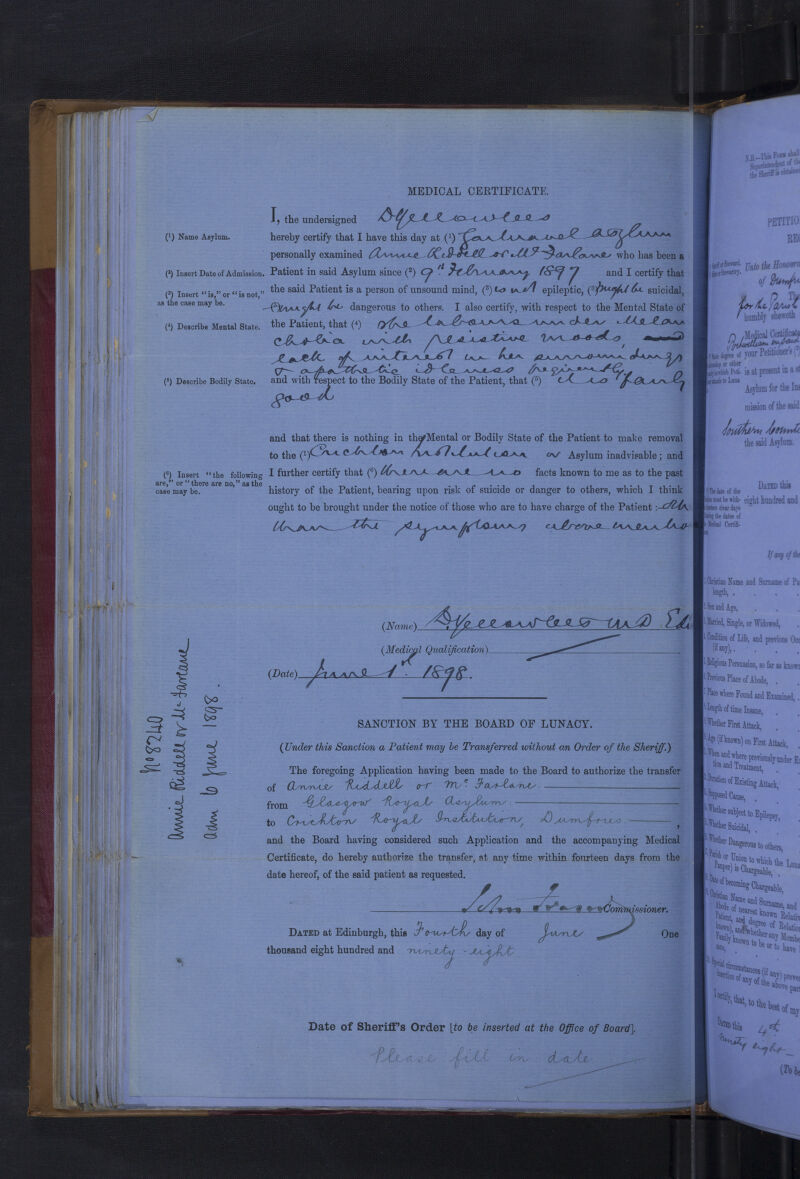 MEDICAL CERTIFICATE.
I, the undersigned D Yellowlees
(¹) Name Asylum.
hereby certify that I have this day at (¹) Gartnavel Asylum
personally examined Annie Riddell or Mc Farlane who has been a
(²) Insert Date of Admission.
Patient in said Asylum since (²) 9th February 1897 and I certify that
(³) Insert "is," or "is not," as the case may be.
the said Patient is a person of unsound mind, (³) is not epileptic, (³) might be suicidal,
(³) might be dangerous to others. I also certify, with respect to the Mental State of
(⁴) Describe Mental State.
the Patient, that (⁴) she labours under Melan
cholia with resistive moods,
lack of interest in her surroundings
& apathetic idleness
(⁵) Describe Bodily State.
and with respect to the Bodily State of the Patient, that (⁵) it is fairly
good
and that there is nothing in the Mental or Bodily State of the Patient to make removal
to the (¹) Crichton Institution or Asylum inadvisable; and
(⁶) Insert "the following are," or "there are no," as the case may be.
I further certify that (⁶) there are no facts known to me as to the past
history of the Patient, bearing upon risk of suicide or danger to others, which I think
ought to be brought under the notice of those who are to have charge of the Patient:—
than the symptoms above
(Name) D. Yellowlees M.D.
(Medical Qualification)
(Date) June 1st 1898.
No 8240
Annie Riddell or Mc Farlane
adm 6 June 1898.
SANCTION BY THE BOARD OF LUNACY.
(Under this Sanction a Patient may be Transferred without an Order of the Sheriff.)
The foregoing Application having been made to the Board to authorize the transfer
of Annie Riddell or Mc Farlane
from Glasgow Royal Asylum
to Crichton Royal Institution, Dumfries,
and the Board having considered such Application and the accompanying Medical
Certificate, do hereby authorize the transfer, at any time within fourteen days from the
date hereof, of the said patient as requested.
John Fraser Commissioner.
DATED at Edinburgh, this Fourth day of June One
thousand eight hundred and ninety-eight
Date of Sheriff's Order [to be inserted at the Office of Board].
Please fill in date
N.B.—This Form shall
Superintendent of the
the Sheriff is
PETITIO
Unto the
of
for the Parish
humbly sheweth
Medical
your Petitioner's
is at present in a
Asylum for the
mission of the said
Southern
the said Asylum.
DATED this
eight hundred and
If any of the
Christian Name and Surname of
length,
Sex and Age,
Married, Single, or Widowed,
Condition of Life, and previous
(if any),
Religious Persuasion, so far as known
Previous Place of Abode,
Place where Found and Examined,
Length of time Insane,
Whether First Attack,
Age (if known) on First Attack,
When and where previously under
tion and Treatment,
Duration of Existing Attack,
Supposed Cause,
Whether subject to Epilepsy,
Whether Suicidal,
Whether Dangerous to others,
Parish or Union to which the
Pauper) is Chargeable,
Date of becoming Chargeable,
Christian Name and Surname, and
Abode of nearest known
Patient, and degree of
known), and whether any
Family known to be or to have
Special circumstances (if any)
insertion of any of the above
I certify, that, to the best of my
Dated this 4th
ninety eight